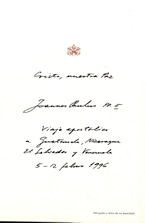 Cristo, nuestra Paz
Joannes Paulus PP. II
Viaje apostólico
a Guatemala, Nicaragua
El Salvador y Venezuela
5-12 febrero 1996